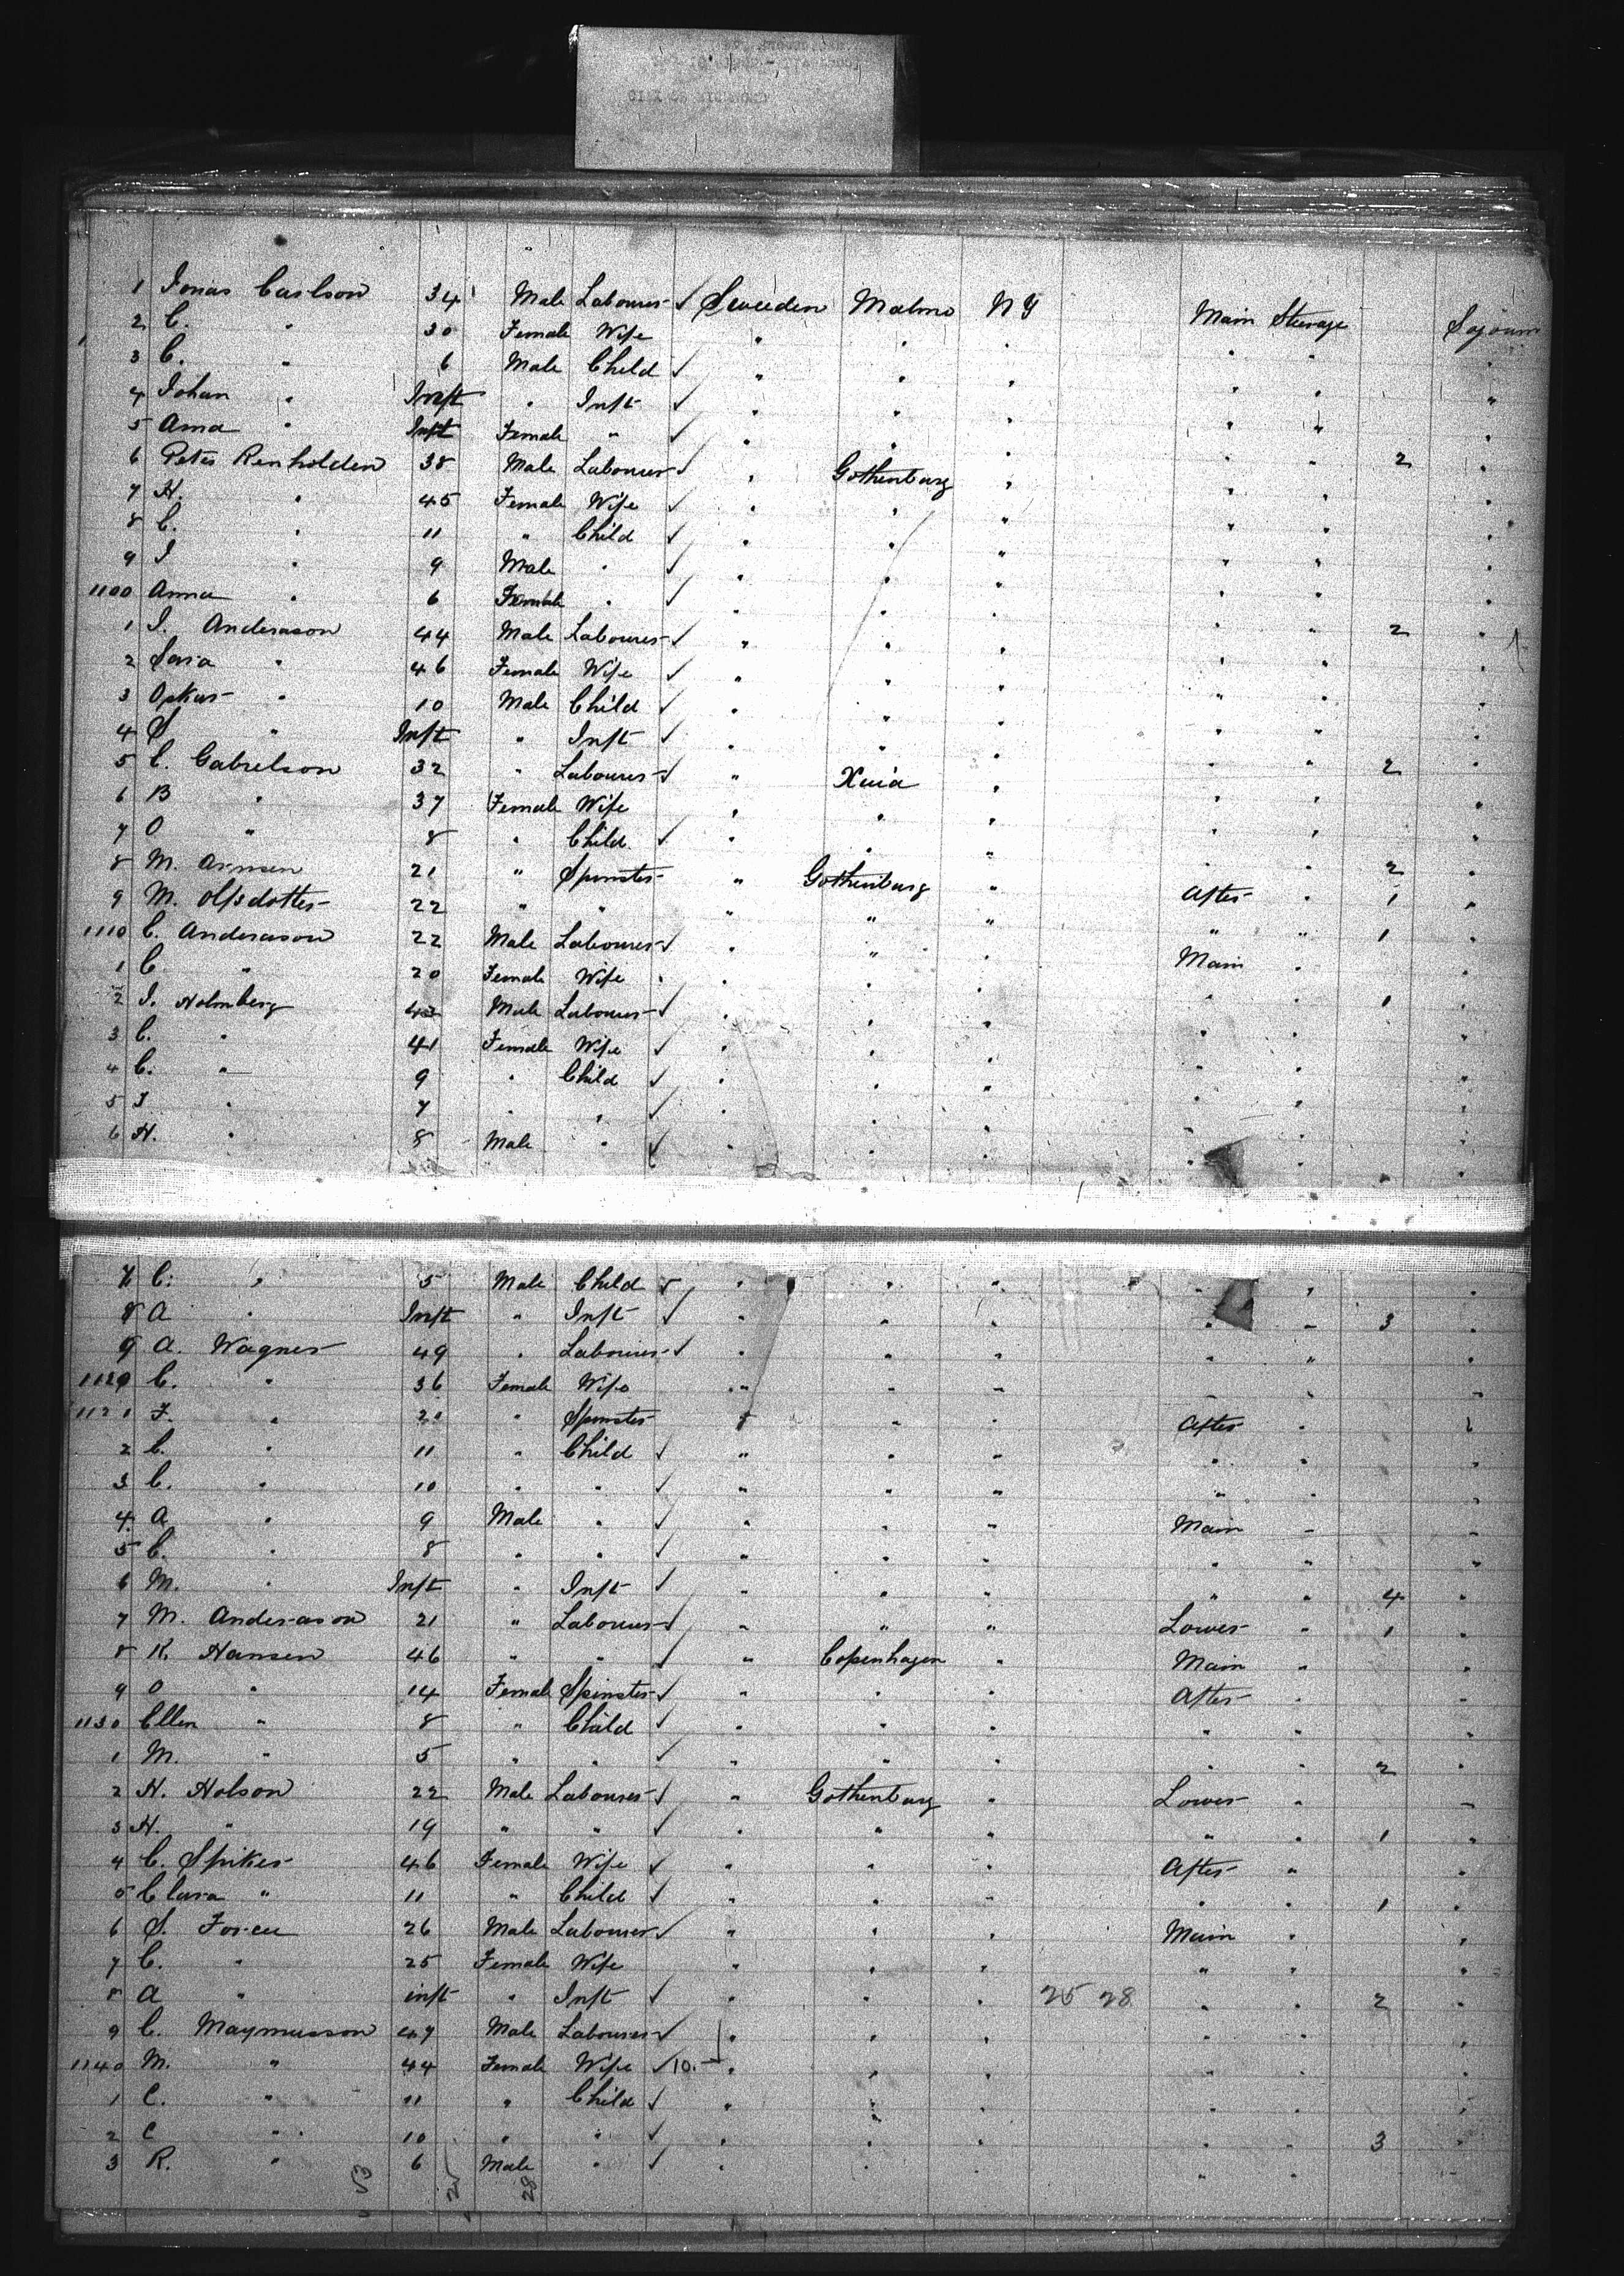 1 Jonas Carlson 34 Male Labourer ✓ Sweeden Malmo N Y Main Steerage Sojourn
2 C. " 30 Female Wife " " " " " "
3 C. " 6 Male Child ✓ " " " " " "
4 Johan " Inft " Inft ✓ " " " " " "
5 Anna " Inft Female " ✓ " " " " " 2 "
6 Peter Renholden 38 Male Labourer ✓ " Gothenburg " " " "
7 H. " 45 Female Wife ✓ " " " " " "
8 C. " 11 " Child ✓ " " " " " "
9 I " 9 Male " ✓ " " " " " "
1100 Anna " 6 Female " ✓ " " " " " 2 "
1 I. Anderason 44 Male Labourer ✓ " " " " " "
2 Sara " 46 Female Wife ✓ " " " " " "
3 Opkar " 10 Male Child ✓ " " " " " "
4 S " Inft " Inft ✓ " " " " " 2 "
5 C. Gabrelson 32 " Labourer ✓ " Xuia " " " "
6 B " 37 Female Wife " " " " " "
7 O " 8 " Child ✓ " " " " " 2 "
8 M. Arnsen 21 " Spinster " Gothenburg " After " 1 "
9 M. Olfsdotter 22 " " " " " " " 1 "
1110 C. Anderason 22 Male Labourer ✓ " " " Main " "
1 C. " 20 Female Wife " " " " " " 1 "
2 I. Holmberg 43 Male Labourer ✓ " " " " " "
3 C. " 41 Female Wife ✓ " " " " " "
4 C. " 9 " Child ✓ " " " " " "
5 I " 7 " " ✓ " " " " " "
6 H. " 8 Male " ✓ " " " " " "
7 C. " 5 Male Child ✓ " " " " " "
8 A " Inft " Inft ✓ " " " " " 3 "
9 A. Wagner 49 " Labourer ✓ " " " " " "
1120 C. " 36 Female Wife " " " " " "
1121 F. " 20 " Spinster " " " After "
2 C. " 11 " Child ✓ " " " " " "
3 C. " 10 " " ✓ " " " " " "
4 A " 9 Male " ✓ " " " Main " "
5 C. " 8 " " ✓ " " " " " "
6 M. " Inft " Inft ✓ " " " " " 4 "
7 M. Anderason 21 " Labourer ✓ " " " Lower " 1 "
8 K. Hansen 46 " " ✓ " Copenhagen " Main " "
9 O " 14 Female Spinster ✓ " " " After " "
1130 Ellen " 8 " Child ✓ " " " " " "
1 M. " 5 " " ✓ " " " " " 2 "
2 H. Holson 22 Male Labourer ✓ " Gothenburg " Lower " "
3 H. " 19 " " ✓ " " " " " 1 "
4 C. Spiker 46 Female Wife ✓ " " " After " "
5 Clara " 11 " Child ✓ " " " " " 1 "
6 S. 26 Male Labourer ✓ " " " Main " "
7 C. " 25 Female Wife " " " " " "
8 A " inft " Inft ✓ " " " 25 28 " " 2 "
9 C. Maymusson 47 Male Labourer ✓ " " " " " "
1140 M. " 44 Female Wife ✓ 10.- " " " " " "
1 C. " 11 " Child ✓ " " " " " "
2 C " 10 " " ✓ " " " " " 3 "
3 R. " 6 Male " ✓ " " " "
53 25 28